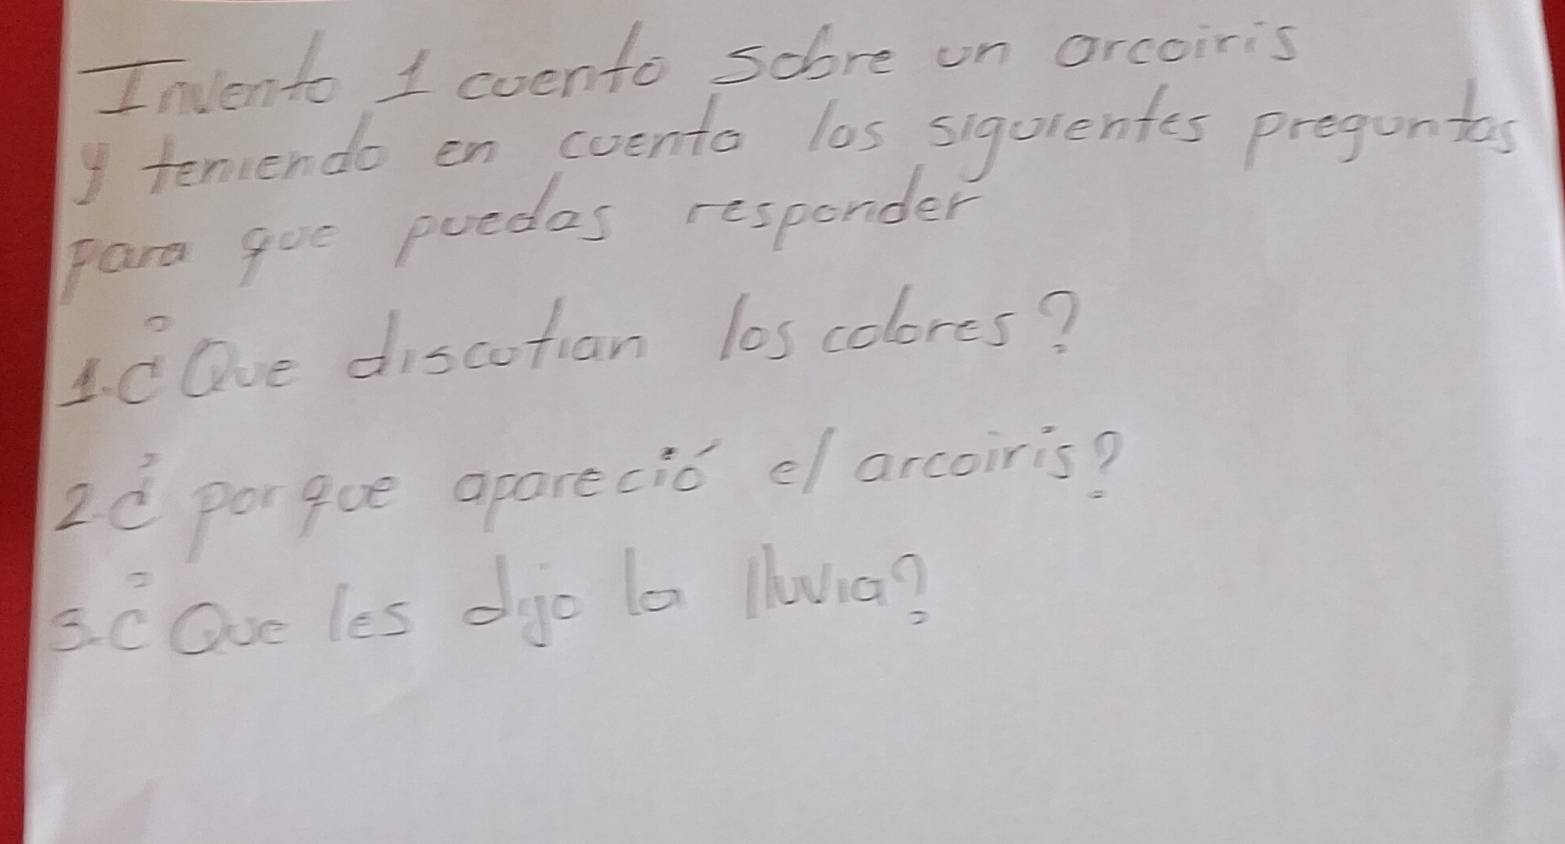 Invento 1 cuento sobre un arcoiris
y teniendo en cuenta las siguientes preguntas
para que puedas responder
1. ¿Que discutian los colores?
2. ¿ por que apareció el arcoiris?
3. ¿Que les dijo la lluvia?